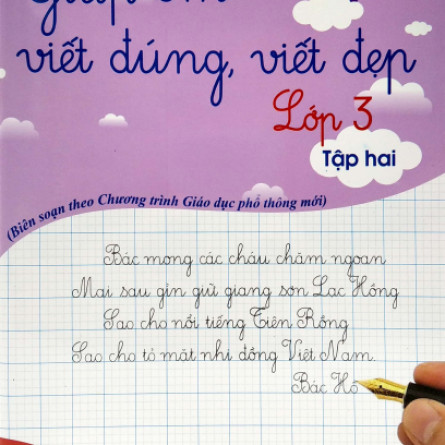 Giúp em
viết đúng, viết đẹp
Lớp 3
Tập hai
(Biên soạn theo Chương trình Giáo dục phổ thông mới)
Bác mong các cháu chăm ngoan
Mai sau gìn giữ giang sơn Lạc Hồng
Sao cho nổi tiếng Tiên Rồng
Sao cho tỏ mặt nhi đồng Việt Nam.
Bác Hồ